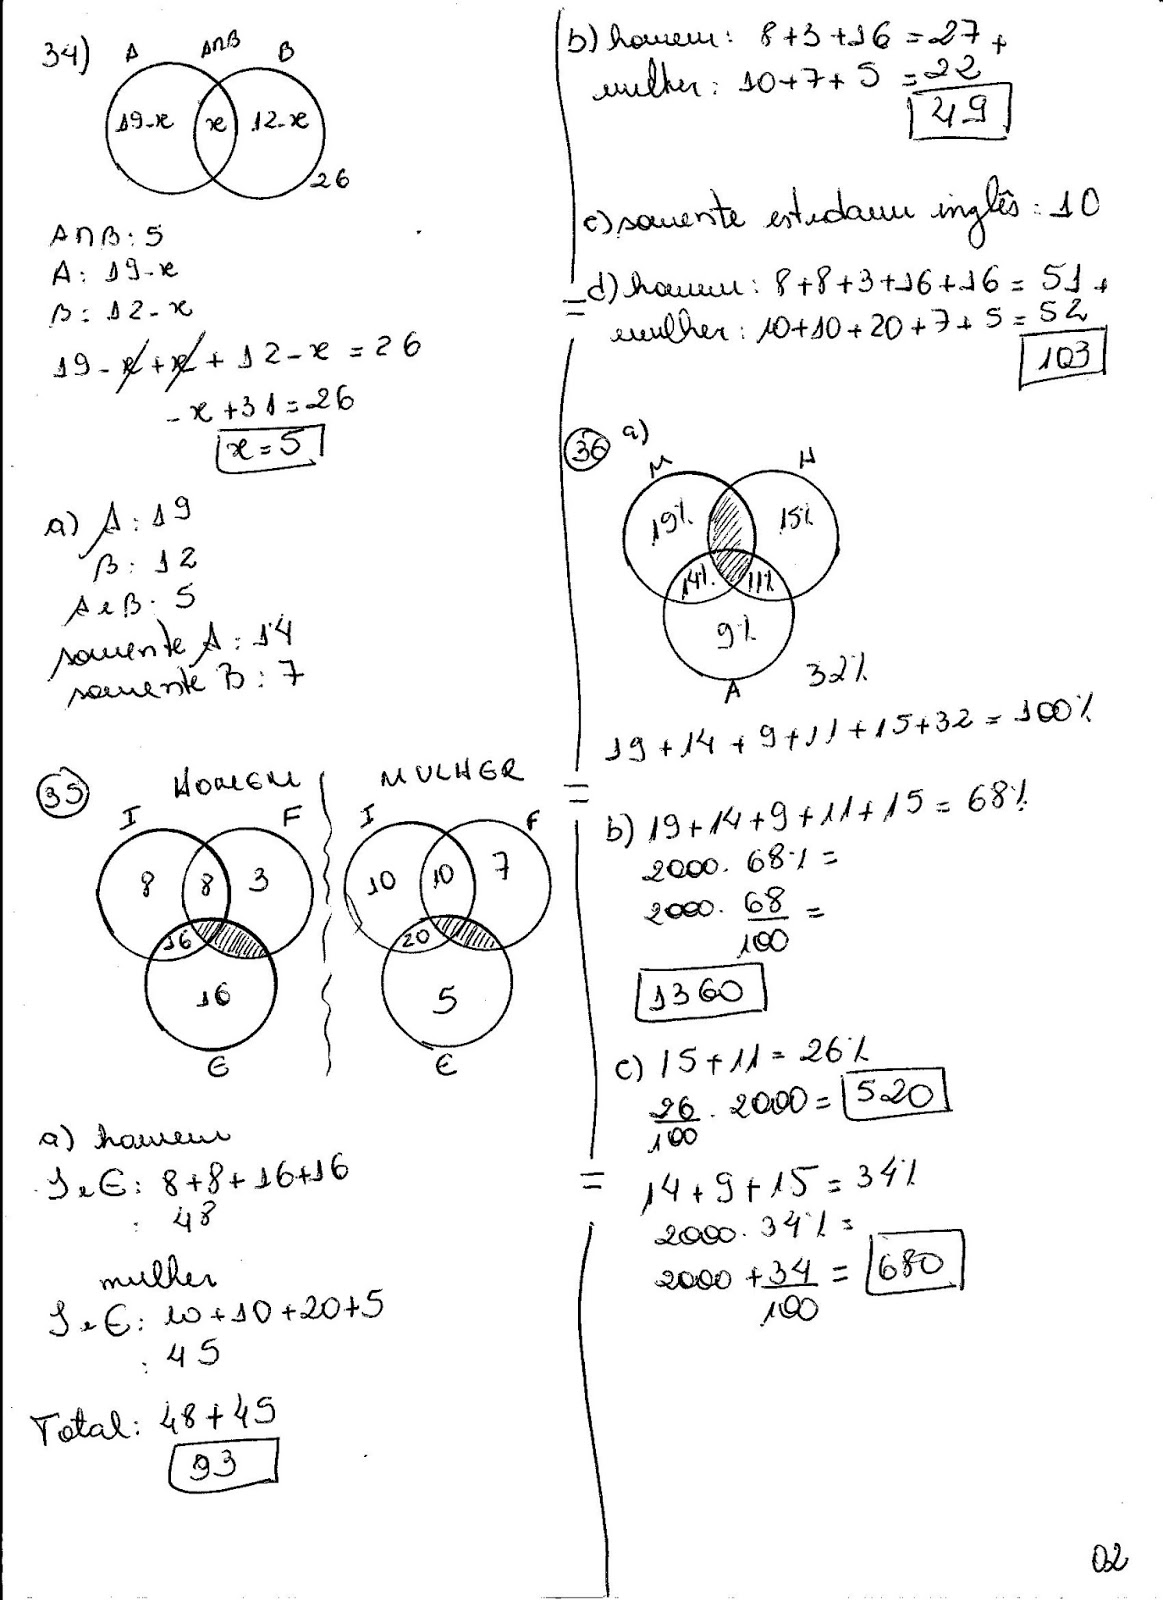 34) A A∩B B
19-x x 12-x
26
A∩B: 5
A: 19-x
B: 12-x
19-x+x+12-x=26
-x+31=26
x=5
a) A: 19
B: 12
A e B: 5
somente A: 14
somente B: 7
35 HOMEM MULHER
I F I F
8 8 3 10 10 7
16 20
16 5
E E
a) homem
I e E: 8+8+16+16
: 48
mulher
I e E: 10+10+20+5
: 45
Total: 48+45
93
b) homem: 8+3+16=27+
mulher: 10+7+5=22
49
c) somente estudam inglês: 10
= d) homem: 8+8+3+16+16=51+
mulher: 10+10+20+7+5=52
103
36 a)
M H
19% 15%
14% 11%
9%
32%
A
19+14+9+11+15+32=100%
=
b) 19+14+9+11+15=68%
2000.68%=
2000.68/100=
1360
c) 15+11=26%
26/100.2000=520
= 14+9+15=34%
2000.34%=
2000+34/100=680
02